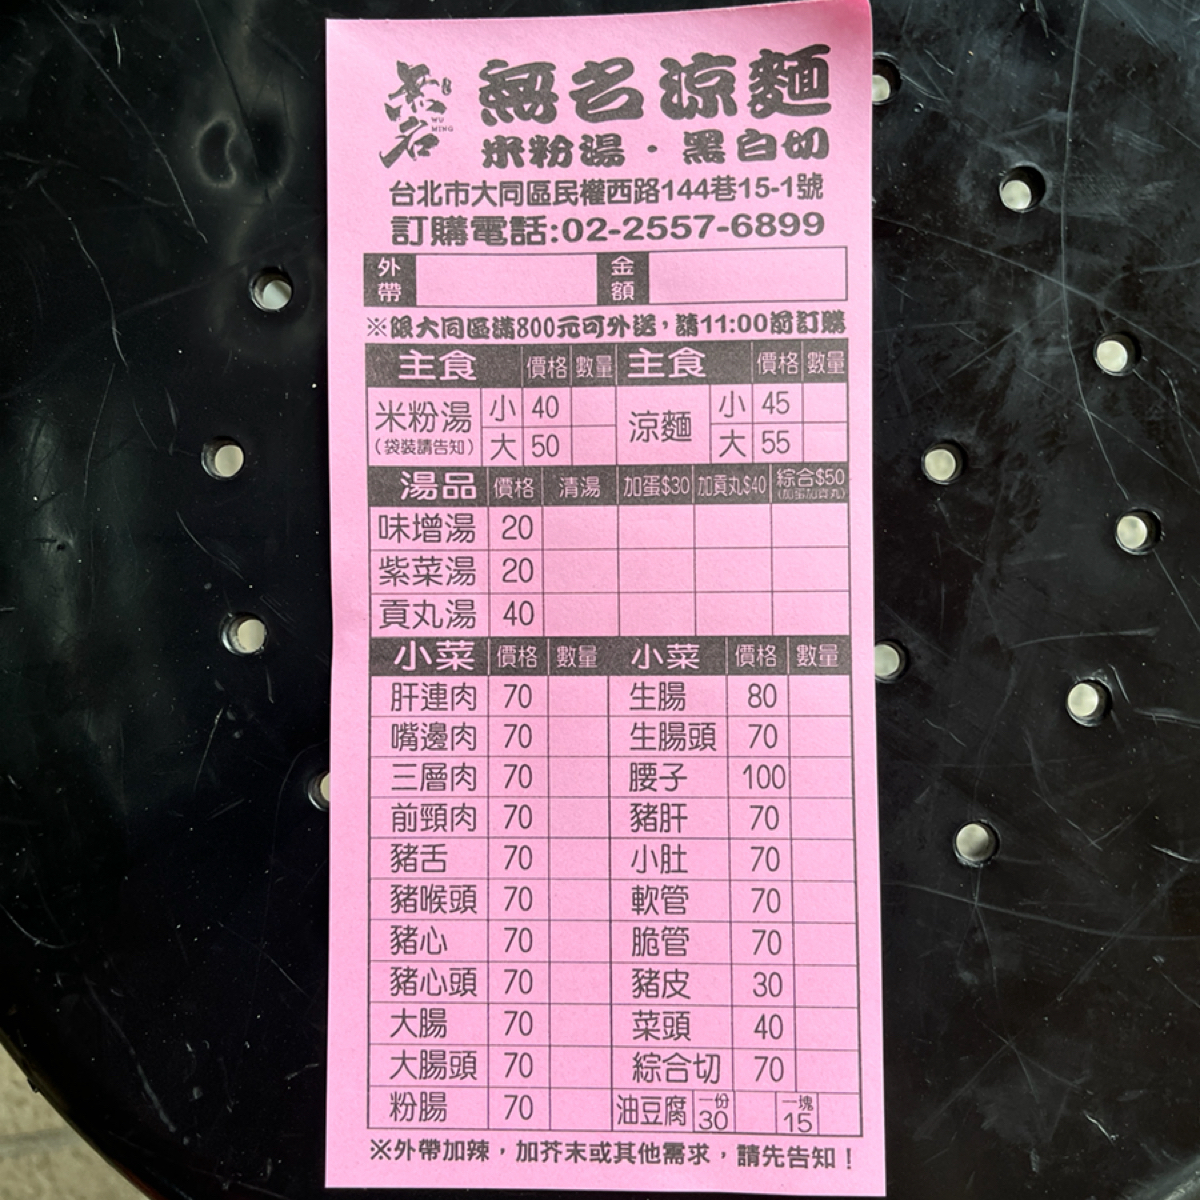 無名 WU MING
無名涼麵
米粉湯・黑白切
台北市大同區民權西路144巷15-1號
訂購電話:02-2557-6899
外帶 金額
※限大同區滿800元可外送，請11:00前訂購
主食 價格 數量 主食 價格 數量
米粉湯 (袋裝請告知) 小 40 涼麵 小 45
大 50 大 55
湯品 價格 清湯 加蛋$30 加貢丸$40 綜合$50 (加蛋加貢丸)
味增湯 20
紫菜湯 20
貢丸湯 40
小菜 價格 數量 小菜 價格 數量
肝連肉 70 生腸 80
嘴邊肉 70 生腸頭 70
三層肉 70 腰子 100
前頸肉 70 豬肝 70
豬舌 70 小肚 70
豬喉頭 70 軟管 70
豬心 70 脆管 70
豬心頭 70 豬皮 30
大腸 70 菜頭 40
大腸頭 70 綜合切 70
粉腸 70 油豆腐 一份 30 一塊 15
※外帶加辣，加芥末或其他需求，請先告知！